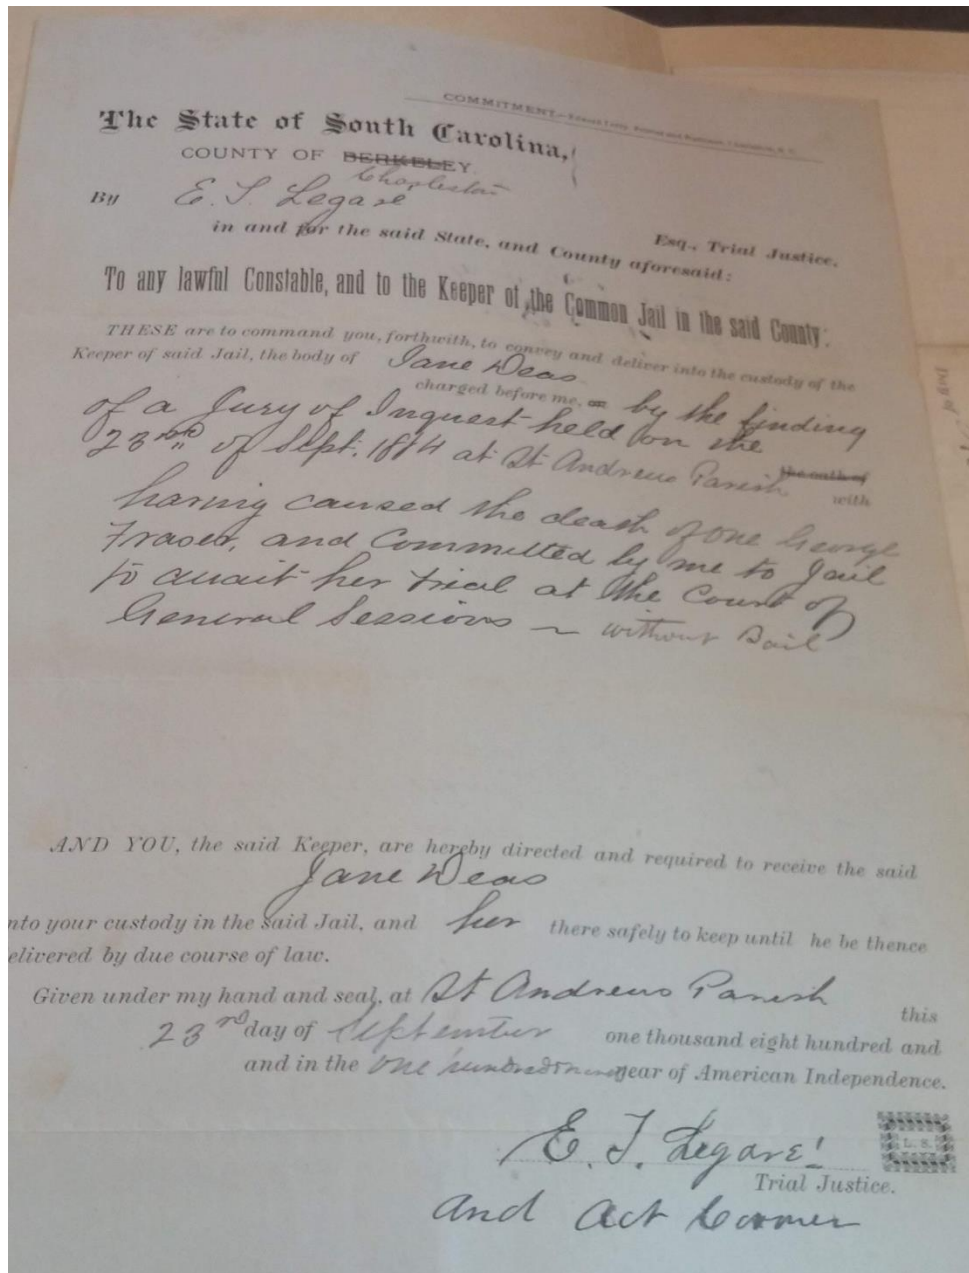 COMMITMENT.
The State of South Carolina,
COUNTY OF BERKELEY.
Charleston
By E. T. Legare
Esq., Trial Justice,
in and for the said State, and County aforesaid:
To any lawful Constable, and to the Keeper of the Common Jail in the said County:
THESE are to command you, forthwith, to convey and deliver into the custody of the
Keeper of said Jail, the body of Jane Deas
charged before me, on by the finding
of a Jury of Inquest held on the
23rd of Sept. at St Andrews Parish the oath of
with
having caused the death of one George
Fraser, and committed by me to Jail
to await her trial at the Court of
General Sessions ~ without Bail
AND YOU, the said Keeper, are hereby directed and required to receive the said
Jane Deas
nto your custody in the said Jail, and her there safely to keep until he be thence
elivered by due course of law.
Given under my hand and seal, at St Andrews Parish this
23rd day of September one thousand eight hundred and
and in the one hundred year of American Independence.
E. T. Legare
L. S.
Trial Justice.
and Act Coroner